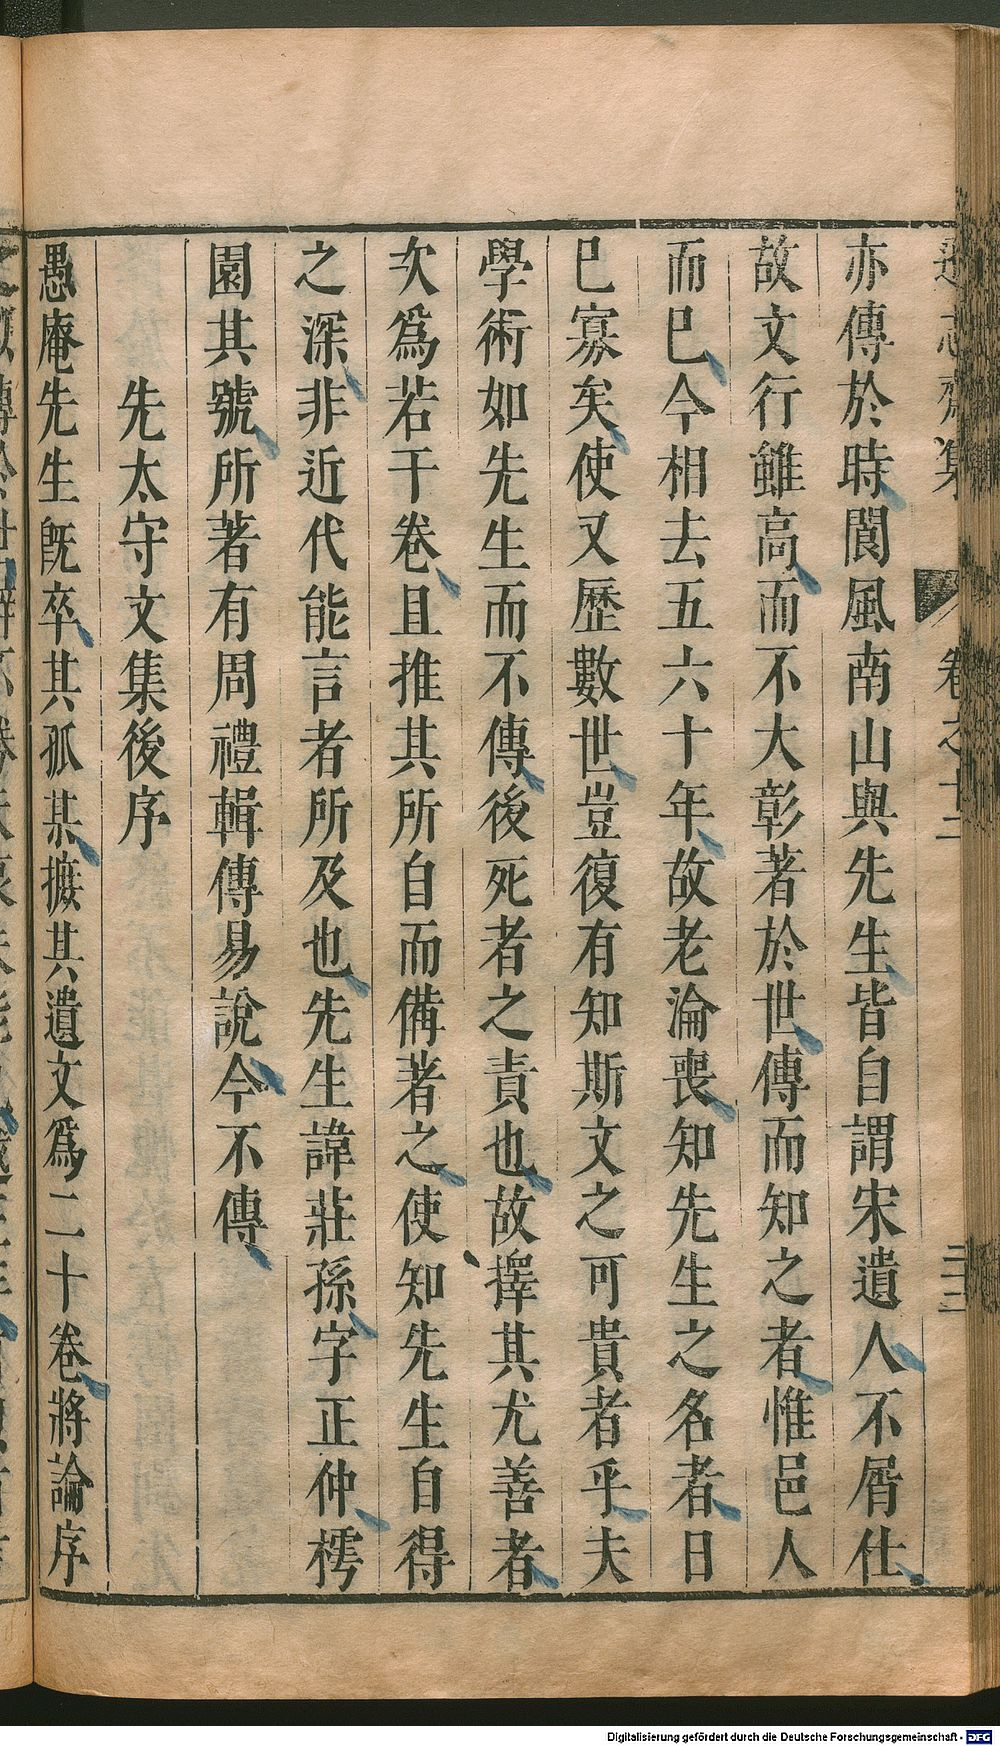 遜志齋集 卷之十二 二三
亦傳於時閬風南山與先生皆自謂宋遺人不屑仕
故文行雖高而不大彰著於世傳而知之者惟邑人
而已今相去五六十年故老淪喪知先生之名者日
已寡矣使又歷數世豈復有知斯文之可貴者乎夫
學術如先生而不傳後死者之責也故擇其尤善者
次爲若干卷且推其所自而備著之使知先生自得
之深非近代能言者所及也先生諱莊孫字正仲樗
園其號所著有周禮輯傳易說今不傳
先太守文集後序
愚庵先生旣卒其孤某摭其遺文爲二十卷將論序
Digitalisierung gefördert durch die Deutsche Forschungsgemeinschaft - DFG